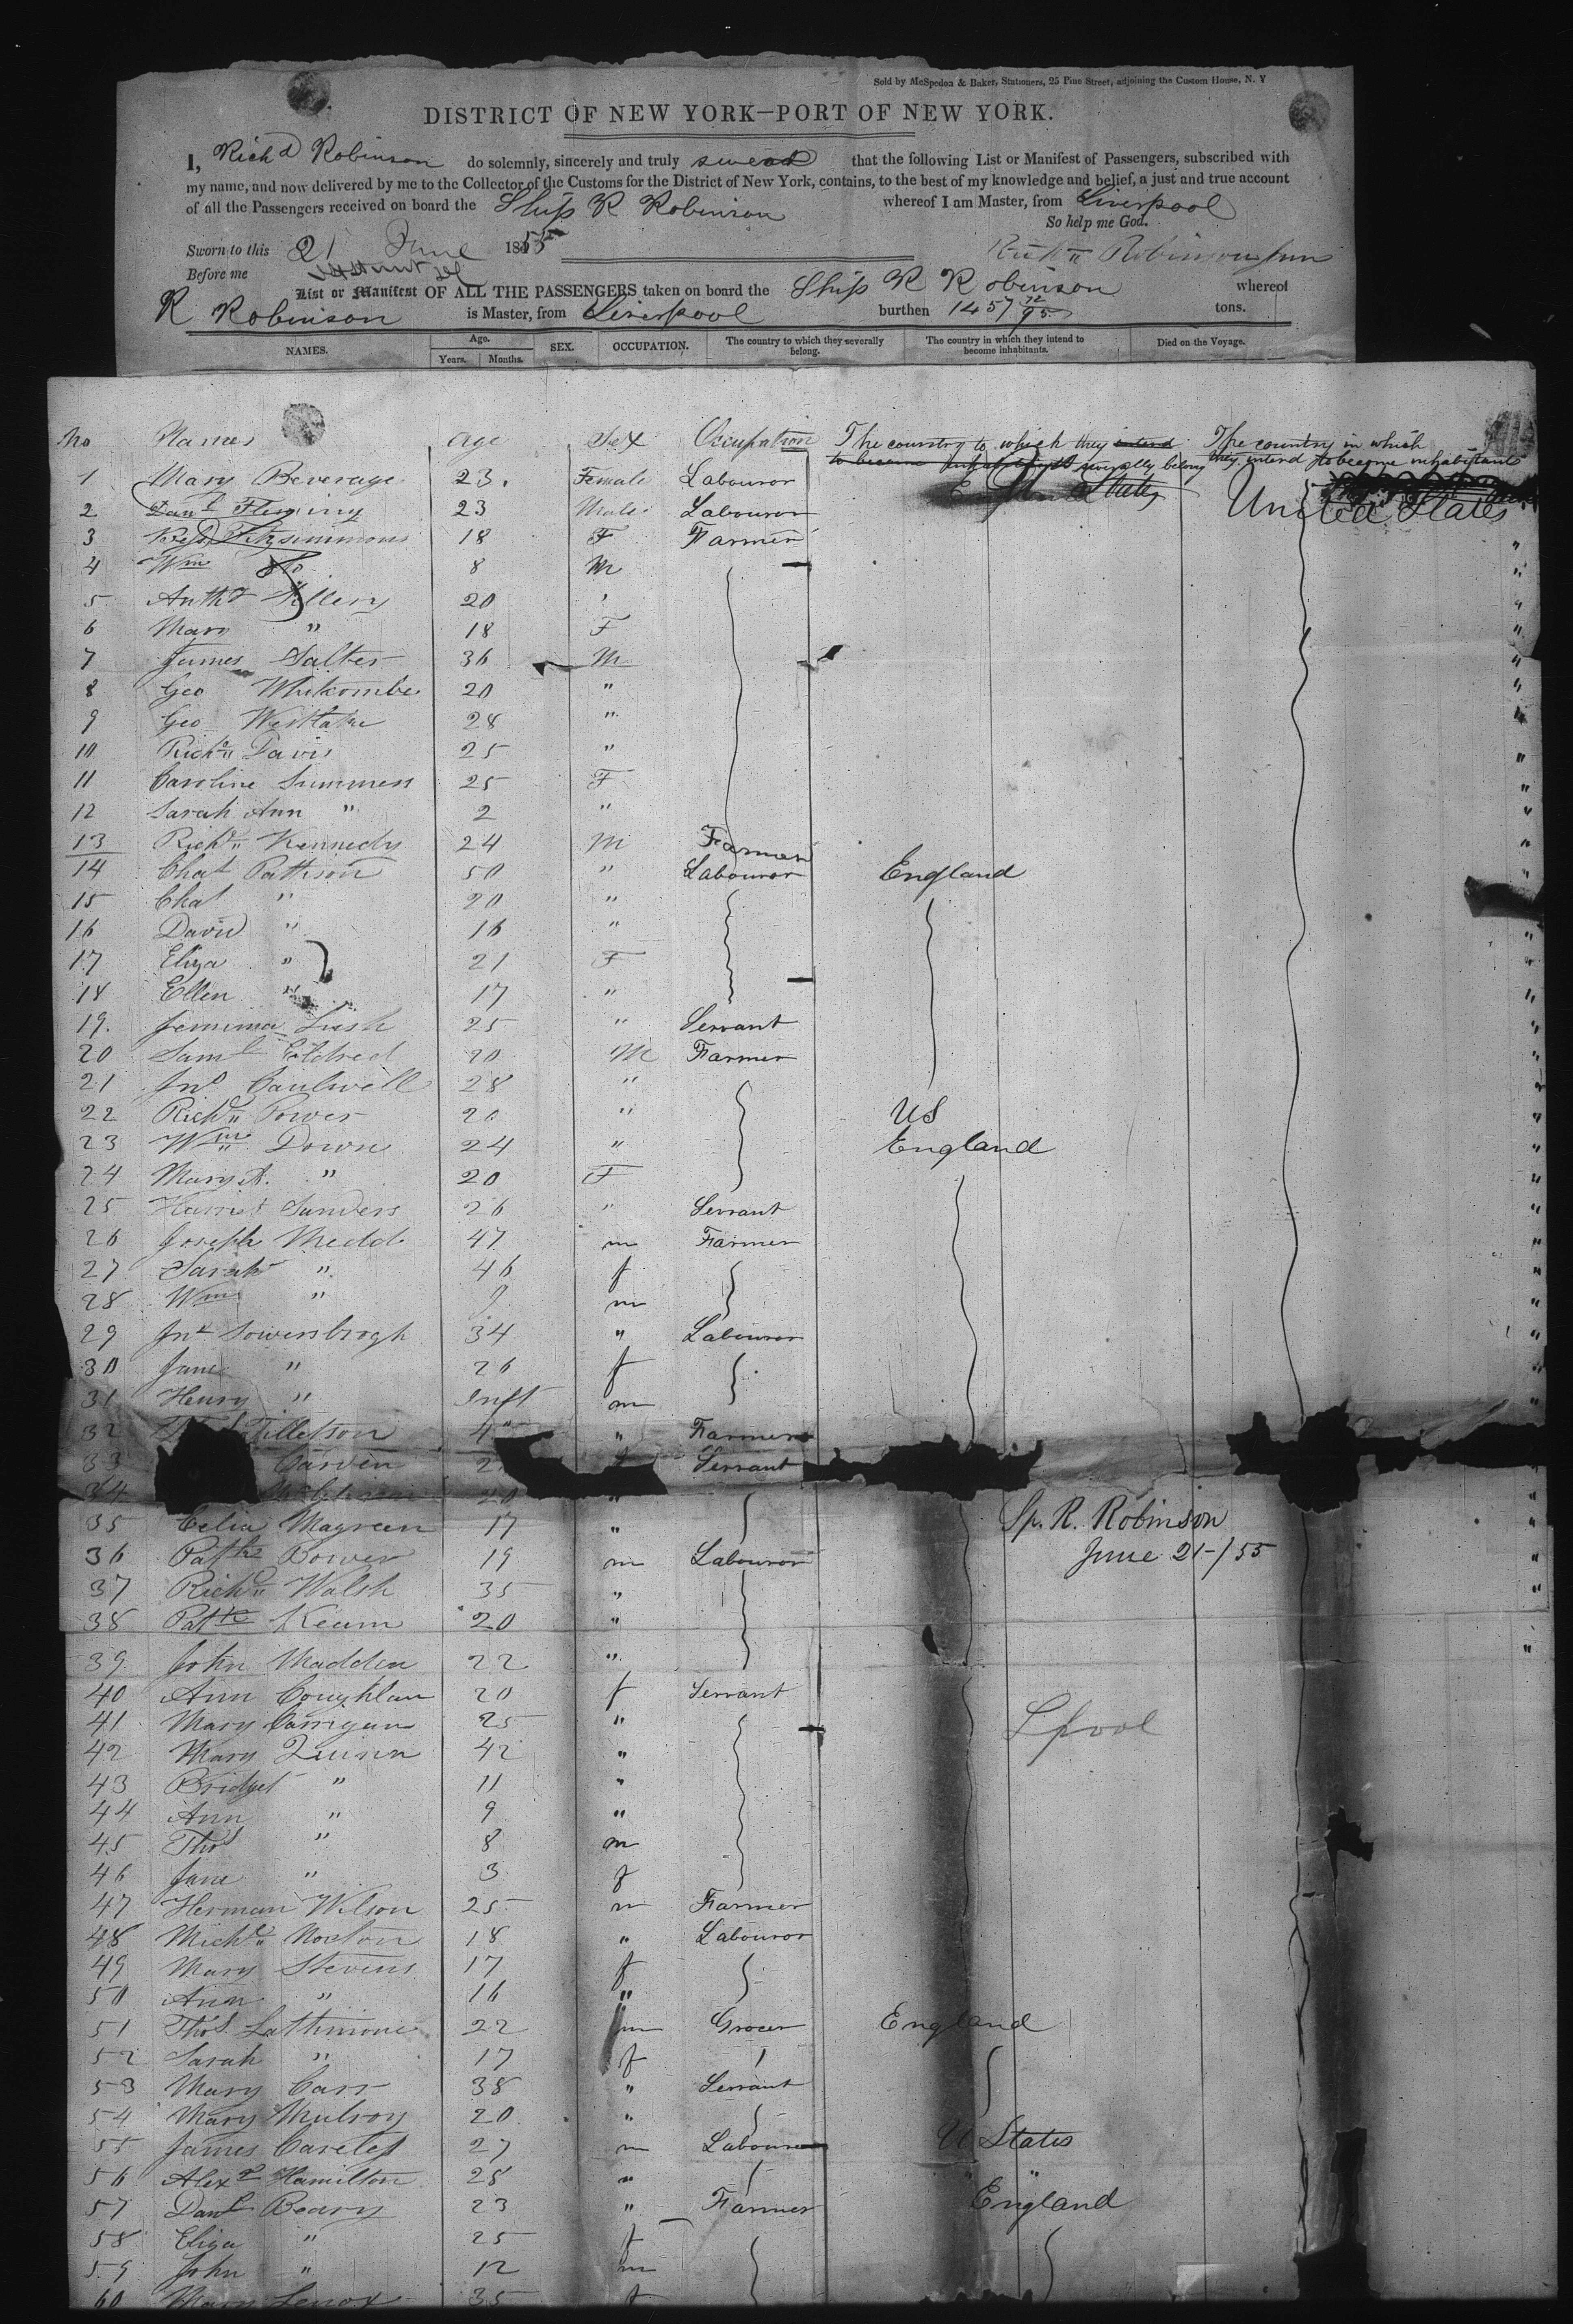 Sold by McSpedon & Baker, Stationers, 25 Pine Street, adjoining the Custom House, N. Y
DISTRICT OF NEW YORK—PORT OF NEW YORK.
I, Richd Robinson do solemnly, sincerely and truly swear that the following List or Manifest of Passengers, subscribed with
my name, and now delivered by me to the Collector of the Customs for the District of New York, contains, to the best of my knowledge and belief, a just and true account
of all the Passengers received on board the Ship R Robinson whereof I am Master, from Liverpool
So help me God.
Sworn to this 21 June 1855
Richd Robinson
Before me
List or Manifest OF ALL THE PASSENGERS taken on board the Ship R Robinson whereof
R Robinson is Master, from Liverpool burthen 1457 72/95 tons.
NAMES. Age. Years. Months. SEX. OCCUPATION. The country to which they severally belong. The country in which they intend to become inhabitants. Died on the Voyage.
No Names Age Sex Occupation The country to which they intend The country in which
to become severally belong they intend to become inhabitants
1 Mary Beverage 23. Female Labouror States
2 Danl Fleming 23 Male Labouror United States
3 Fitzsimmons 18 F Farmer "
4 Wm do 8 M "
5 Anthy 20 ' "
6 Mary " 18 F "
7 James Salter 36 M "
8 Geo Whitcombe 20 " "
9 Geo Westlake 28 " "
10 Richd Davis 25 " "
11 Caroline Summers 25 F "
12 Sarah Ann " 2 " "
13 Richd Kennedy 24 M Farmer "
14 Chas Pattison 50 " Labouror England "
15 Chas " 20 "
16 David " 16 " "
17 Eliza " 21 F "
18 Ellen " 17 " "
19. Jemima Lush 25 " Servant "
20 Saml Eldred 20 M Farmer "
21 Jno Caulwell 28 " "
22 Richd Power 20 " US "
23 Wm Down 24 " England "
24 Mary A. " 20 F "
25 Harriet Sanders 26 " Servant "
26 Joseph Medd 47 m Farmer "
27 Sarah " 46 f "
28 Wm " 9 m "
29 Jno Sowersbrogh 34 " Labouror "
30 Jane " 26 f "
31 Henry " Inft m "
32 Tillotson " Farmer
33 Carven Servant
34 20 "
35 Celia Magreen 17 " Sp. R. Robinson "
36 Patk Bower 19 m Labouror June 21-/55 "
37 Richd Walsh 35 " "
38 Patk Keam 20 "
39 John Madden 22 " "
40 Ann Coughlan 20 f Servant
41 Mary Corrigan 25 " Lpool
42 Mary Quinn 42 "
43 Bridget " 11 "
44 Ann " 9 "
45 Thos " 8 m
46 Jane " 3 f
47 Herman Wilson 25 m Farmer
48 Michl Norton 18 " Labouror
49 Mary Stevens 17 f
50 Ann " 16 "
51 Thos Lathmore 22 m Grocer England
52 Sarah " 17 f
53 Mary Carr 38 " Servant
54 Mary Mulroy 20 "
55 James 27 m Labouror U States
56 Alexr Hamilton 28 " "
57 Danl Beary 23 " Farmer England
58 Eliza " 25 f
59 John " 12 m
60 Mary Lenox 35 f